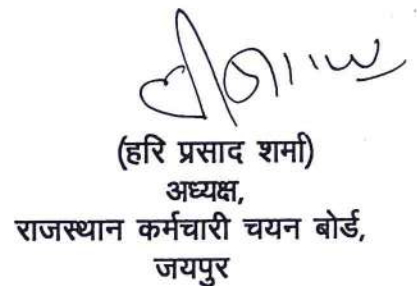 (हरि प्रसाद शर्मा)
अध्यक्ष,
राजस्थान कर्मचारी चयन बोर्ड,
जयपुर